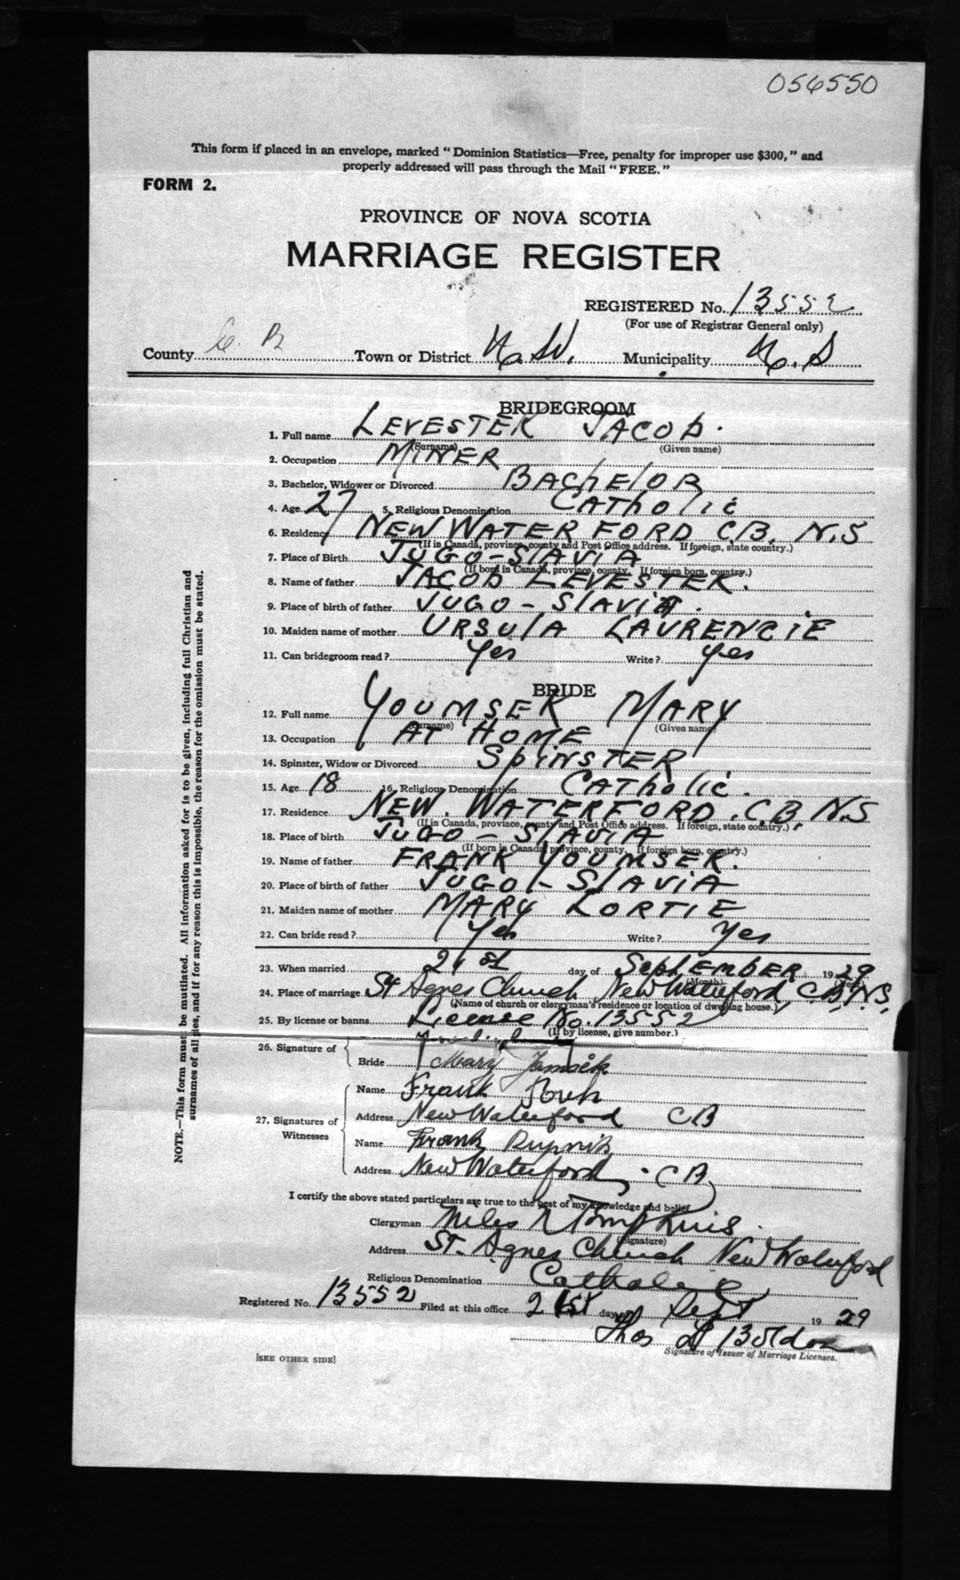 056550
This form if placed in an envelope, marked "Dominion Statistics—Free, penalty for improper use $300," and
properly addressed will pass through the Mail "FREE."
FORM 2.
PROVINCE OF NOVA SCOTIA
MARRIAGE REGISTER
REGISTERED No. 13552
(For use of Registrar General only)
County C. B Town or District N. W. Municipality N. S
BRIDEGROOM
1. Full name LEVESTEK JACOB.
(Surname) (Given name)
2. Occupation MINER
3. Bachelor, Widower or Divorced BACHELOR
4. Age 27 5. Religious Denomination CATHOLIC
6. Residence NEW WATER FORD C.B. N.S
(If in Canada, province, county and Post Office address. If foreign, state country.)
7. Place of Birth JUGO-SLAVIA
(If born in Canada, province, county. If foreign born, country.)
8. Name of father JACOB LEVESTEK.
9. Place of birth of father JUGO-SLAVIA.
10. Maiden name of mother URSULA LAVRENCIE
11. Can bridegroom read? Yes Write? Yes
BRIDE
12. Full name YOUMSEK MARY
(Surname) (Given name)
13. Occupation AT HOME
14. Spinster, Widow or Divorced SPINSTER
15. Age 18 16. Religious Denomination CATHOLIC.
17. Residence NEW WATERFORD. C.B. N.S
(If in Canada, province, county and Post Office address. If foreign, state country.)
18. Place of birth JUGO-SLAVIA
(If born in Canada, province, county. If foreign born, country.)
19. Name of father FRANK YOUMSEK.
20. Place of birth of father JUGO-SLAVIA
21. Maiden name of mother MARY LORTIE
22. Can bride read? Yes Write? Yes
23. When married 21st day of SEPTEMBER 1929
(Month)
24. Place of marriage St Agnes Church New Waterford, C.B., N.S.
(Name of church or clergyman's residence or location of dwelling house.)
25. By license or banns License No. 13552
(If by license, give number.)
26. Signature of
Bride Mary
Name Frank
Address New Waterford CB
27. Signatures of Witnesses
Name Frank Rupnik
Address New Waterford. CB
I certify the above stated particulars are true to the best of my knowledge and belief
Clergyman Miles Tompkins.
(Signature)
Address St. Agnes Church New Waterford
Religious Denomination Catholic
Registered No. 13552 Filed at this office 21st day of Sept 1929
Thos
Signature of Issuer of Marriage Licenses.
[SEE OTHER SIDE]
NOTE.—This form must be mutilated. All information asked for is to be given, including full Christian and
surnames of all parties, and if for any reason this is impossible, the reason for the omission must be stated.